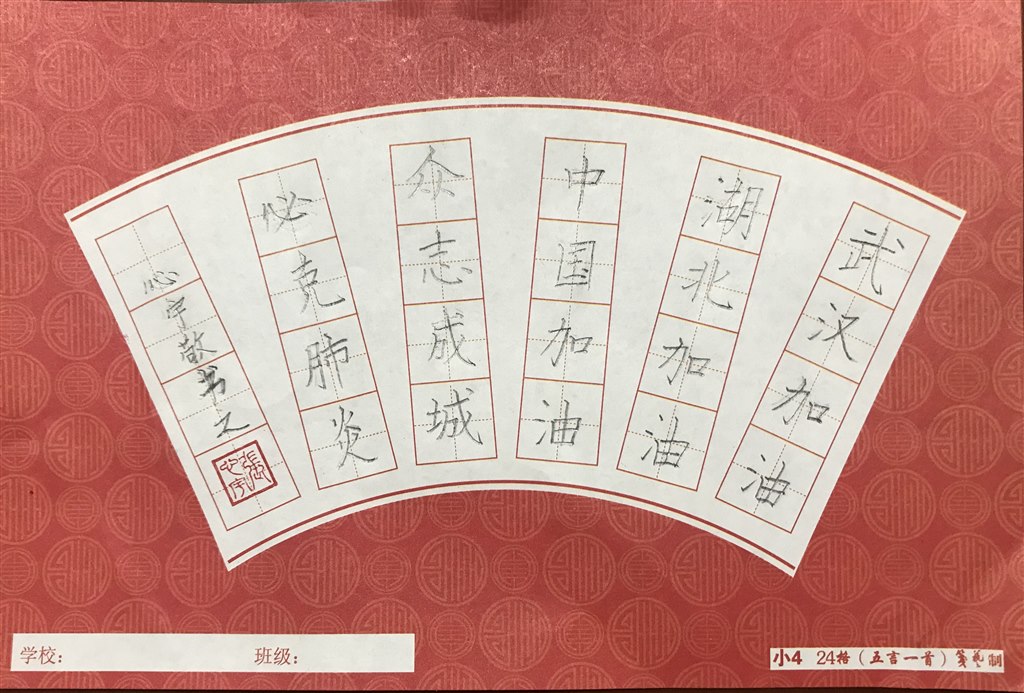 武汉加油
湖北加油
中国加油
众志成城
必克肺炎
心宇敬书之
张心宇
学校：
班级：
小4 24格（五言一首）笺艺制